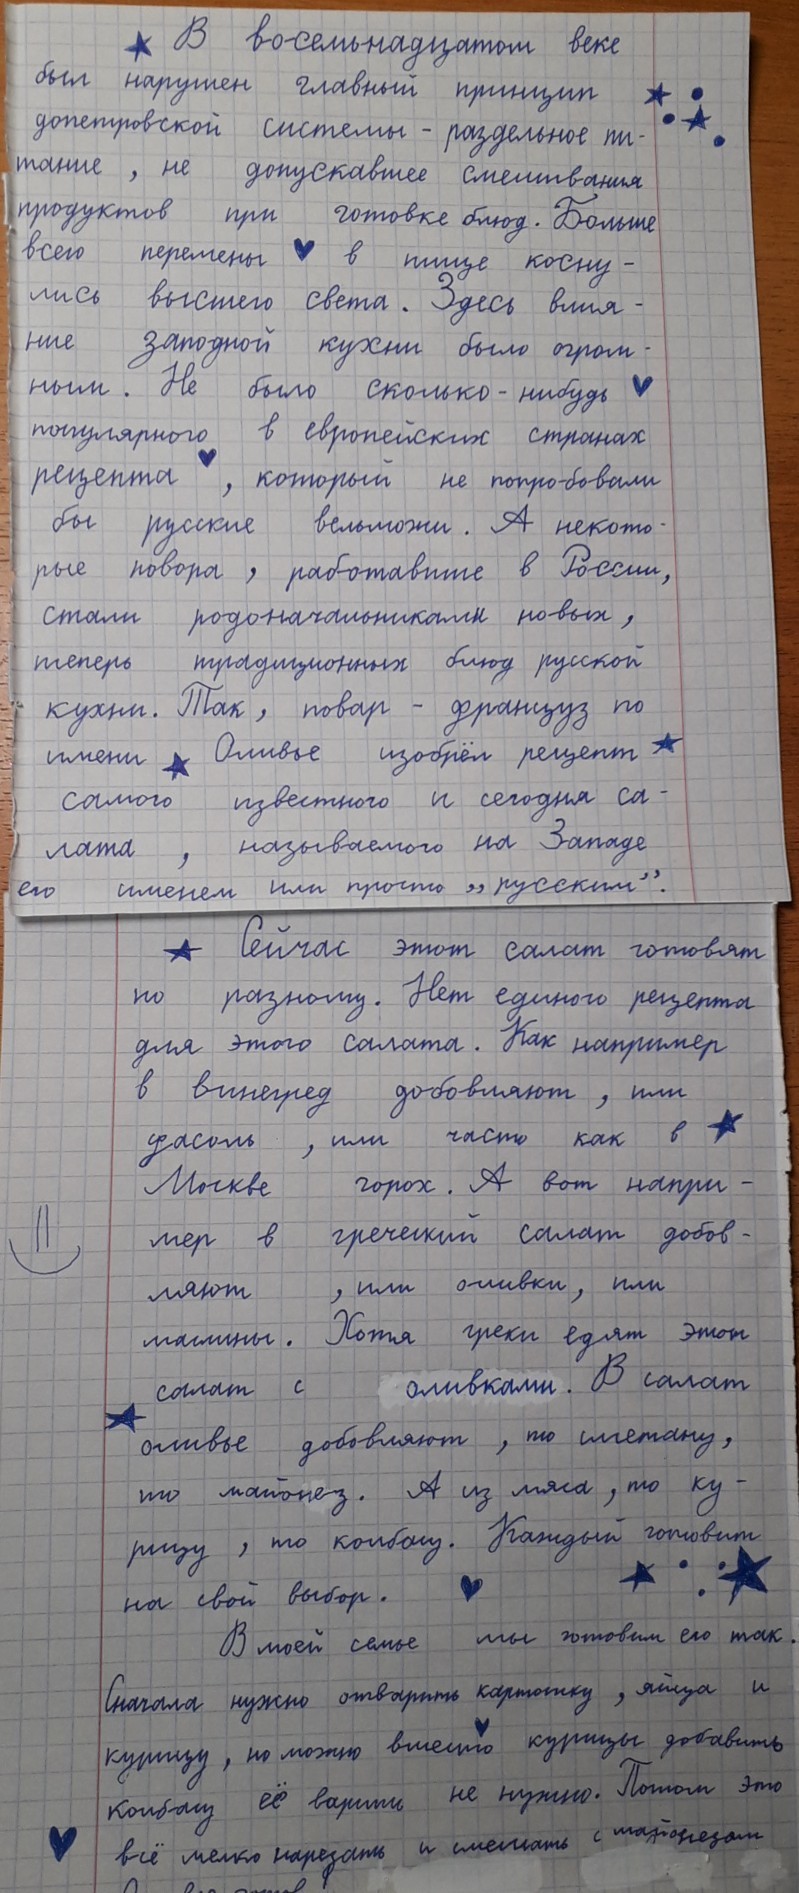 В восемьнадцатом веке
был нарушен главный принцип
допетровской системы - раздельное пи-
тание, не допускавшее смешивания
продуктов при готовке блюд. Больше
всего перемены в пище косну-
лись высшего света. Здесь влия-
ние заподной кухни было огром-
ным. Не было сколько-нибудь
популярного в европейских странах
рецепта, который не попробовали
бы русские вельможи. А некото-
рые повора, работавшие в России,
стали родоначальниками новых,
теперь традиционных блюд русской
кухни. Так, повар - француз по
имени Оливье изобрёл рецепт
самого известного и сегодня са-
лата, называемого на Западе
его именем или просто „русским”.
Сейчас этот салат готовят
по разному. Нет единого рецепта
для этого салата. Как например
в винегред добовляют, или
фасоль, или часто как в
Москве горох. А вот напри-
мер в греческий салат добов-
ляют, или оливки, или
маслины. Хотя греки едят этот
салат с оливками. В салат
оливье добовляют, то сметану,
то майонез. А из мяса, то ку-
рицу, то колбасу. Каждый готовит
на свой выбор.
В моей семье мы готовим его так.
Сначала нужно отварить картошку, яйца и
курицу, но можно вместо курицы добавить
колбасу её варить не нужно. Потом это
всё мелко нарезать и смешать с майонезом